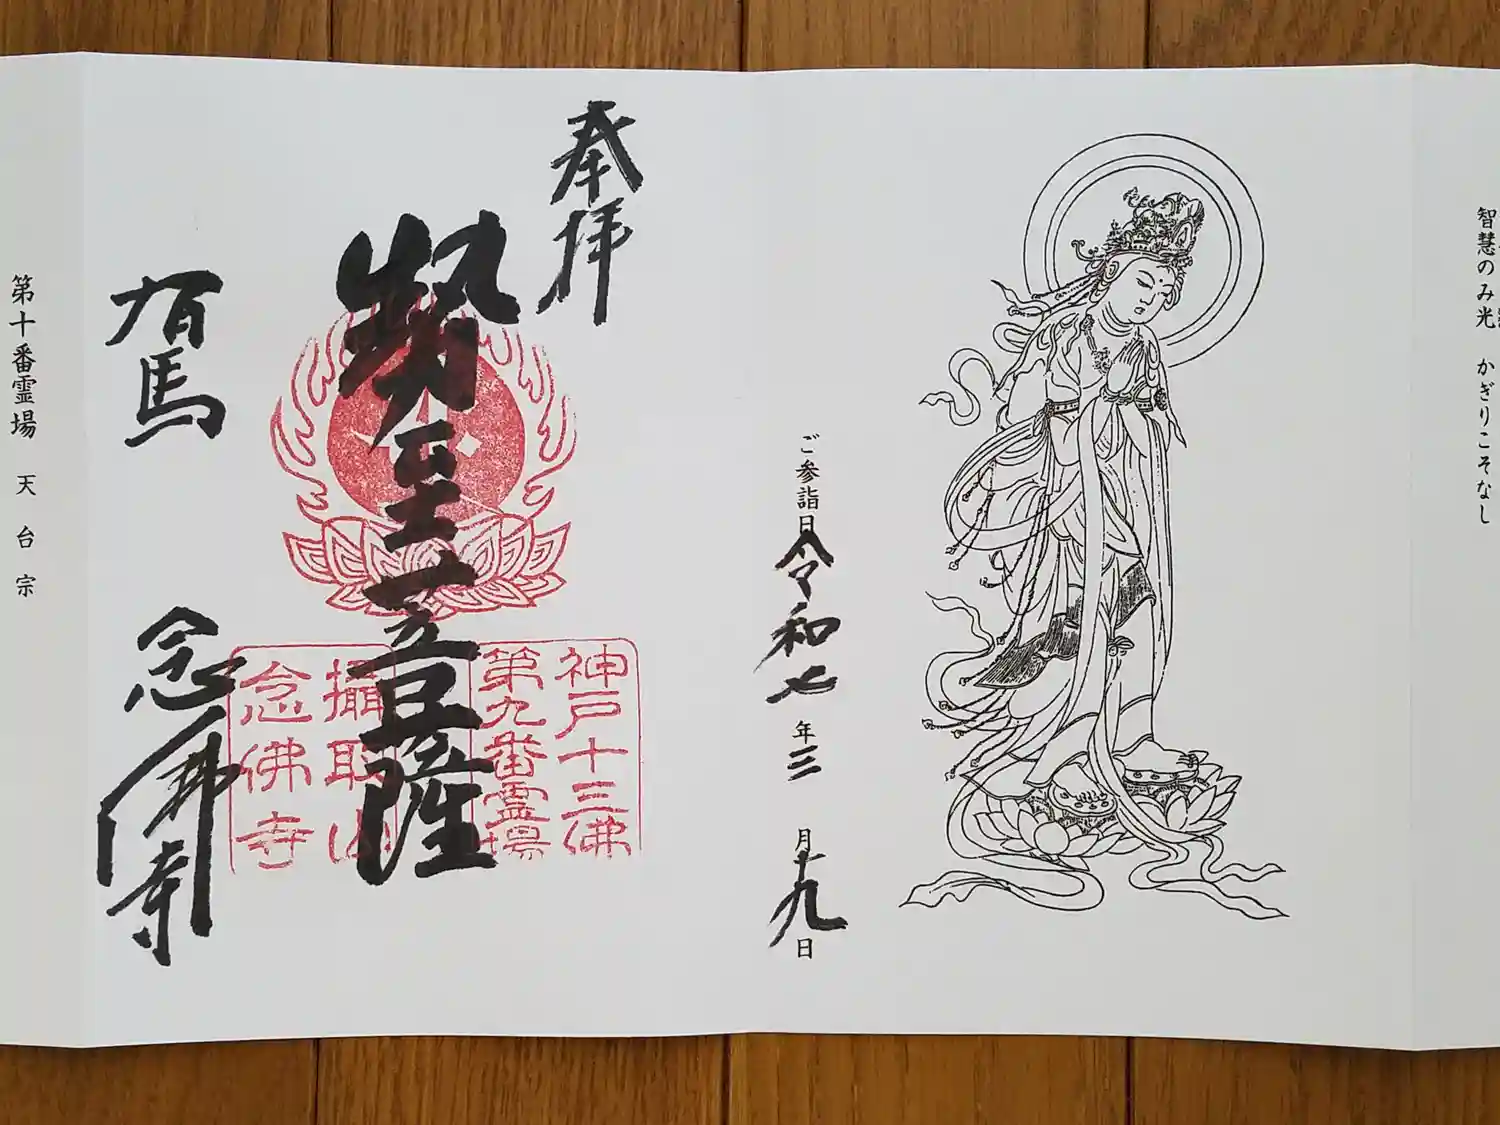 智慧のみ光　かぎりこそなし
ご参詣日令和七年三月十九日
奉拝
勢至菩薩
神戸十三佛
第九番霊場
攝取山
念佛寺
有馬
念佛寺
第十番霊場　天台宗